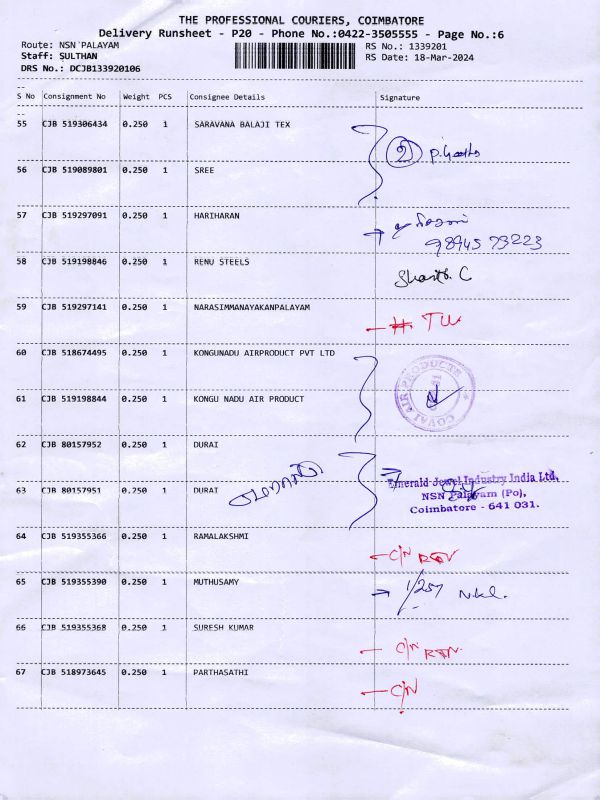 THE PROFESSIONAL COURIERS, COIMBATORE
Delivery Runsheet - P20 - Phone No.:0422-3505555 - Page No.:6
Route: NSN PALAYAM
RS No.: 1339201
Staff: SULTHAN
RS Date: 18-Mar-2024
DRS No.: DCJB133920106
S No Consignment No Weight PCS Consignee Details Signature
55 CJB 519306434 0.250 1 SARAVANA BALAJI TEX
2
56 CJB 519089801 0.250 1 SREE
57 CJB 519297091 0.250 1 HARIHARAN
98945 73223
58 CJB 519198846 0.250 1 RENU STEELS
C
59 CJB 519297141 0.250 1 NARASIMMANAYAKANPALAYAM
60 CJB 518674495 0.250 1 KONGUNADU AIRPRODUCT PVT LTD
AIR PRODUCTS
COVAI
61 CJB 519198844 0.250 1 KONGU NADU AIR PRODUCT
62 CJB 80157952 0.250 1 DURAI
63 CJB 80157951 0.250 1 DURAI
Emerald Jewel Industry India Ltd,
NSN Palayam (Po),
Coimbatore - 641 031.
64 CJB 519355366 0.250 1 RAMALAKSHMI
C/N
65 CJB 519355390 0.250 1 MUTHUSAMY
1/257
66 CJB 519355368 0.250 1 SURESH KUMAR
C/N
67 CJB 518973645 0.250 1 PARTHASATHI
C/N